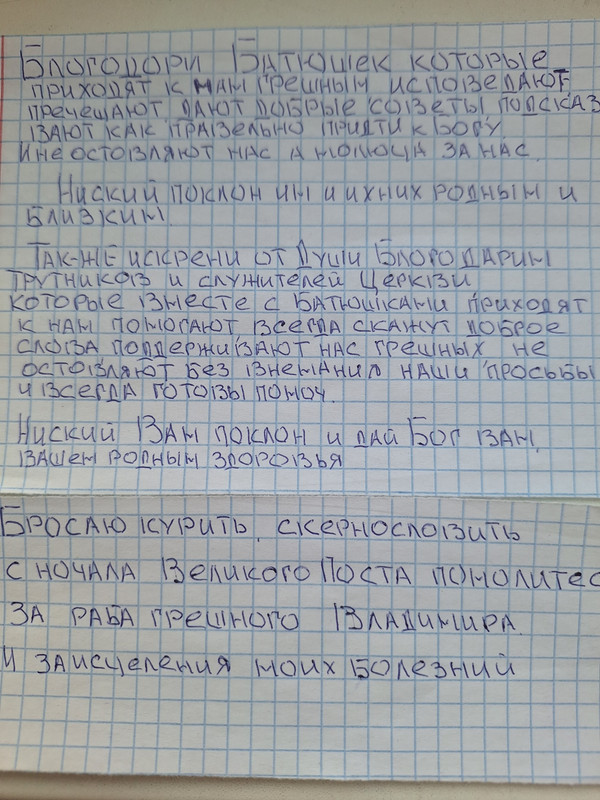 Благодори Батюшек которые
приходят к нам грешным исповедают
пречещают, дают добрые советы подсказ
вают как правельно придти к Богу.
И не остовляют нас а молюца за нас.
Ниский поклон им и ихних родным и
близким.
Так-же искрени от Души Благодарим
трутников и служителей Церкви
которые вместе с батюшками приходят
к нам помогают всегда скажут доброе
слова поддерживают нас грешных не
остовляют без внемания наши просьбы
и всегда готовы помоч.
Ниский Вам поклон и дай Бог вам,
вашем родным здоровья
Бросаю курить, скернословить
с ночала Великого Поста помолитес
за раба грешного Владимира.
И за исцеления моих болезний